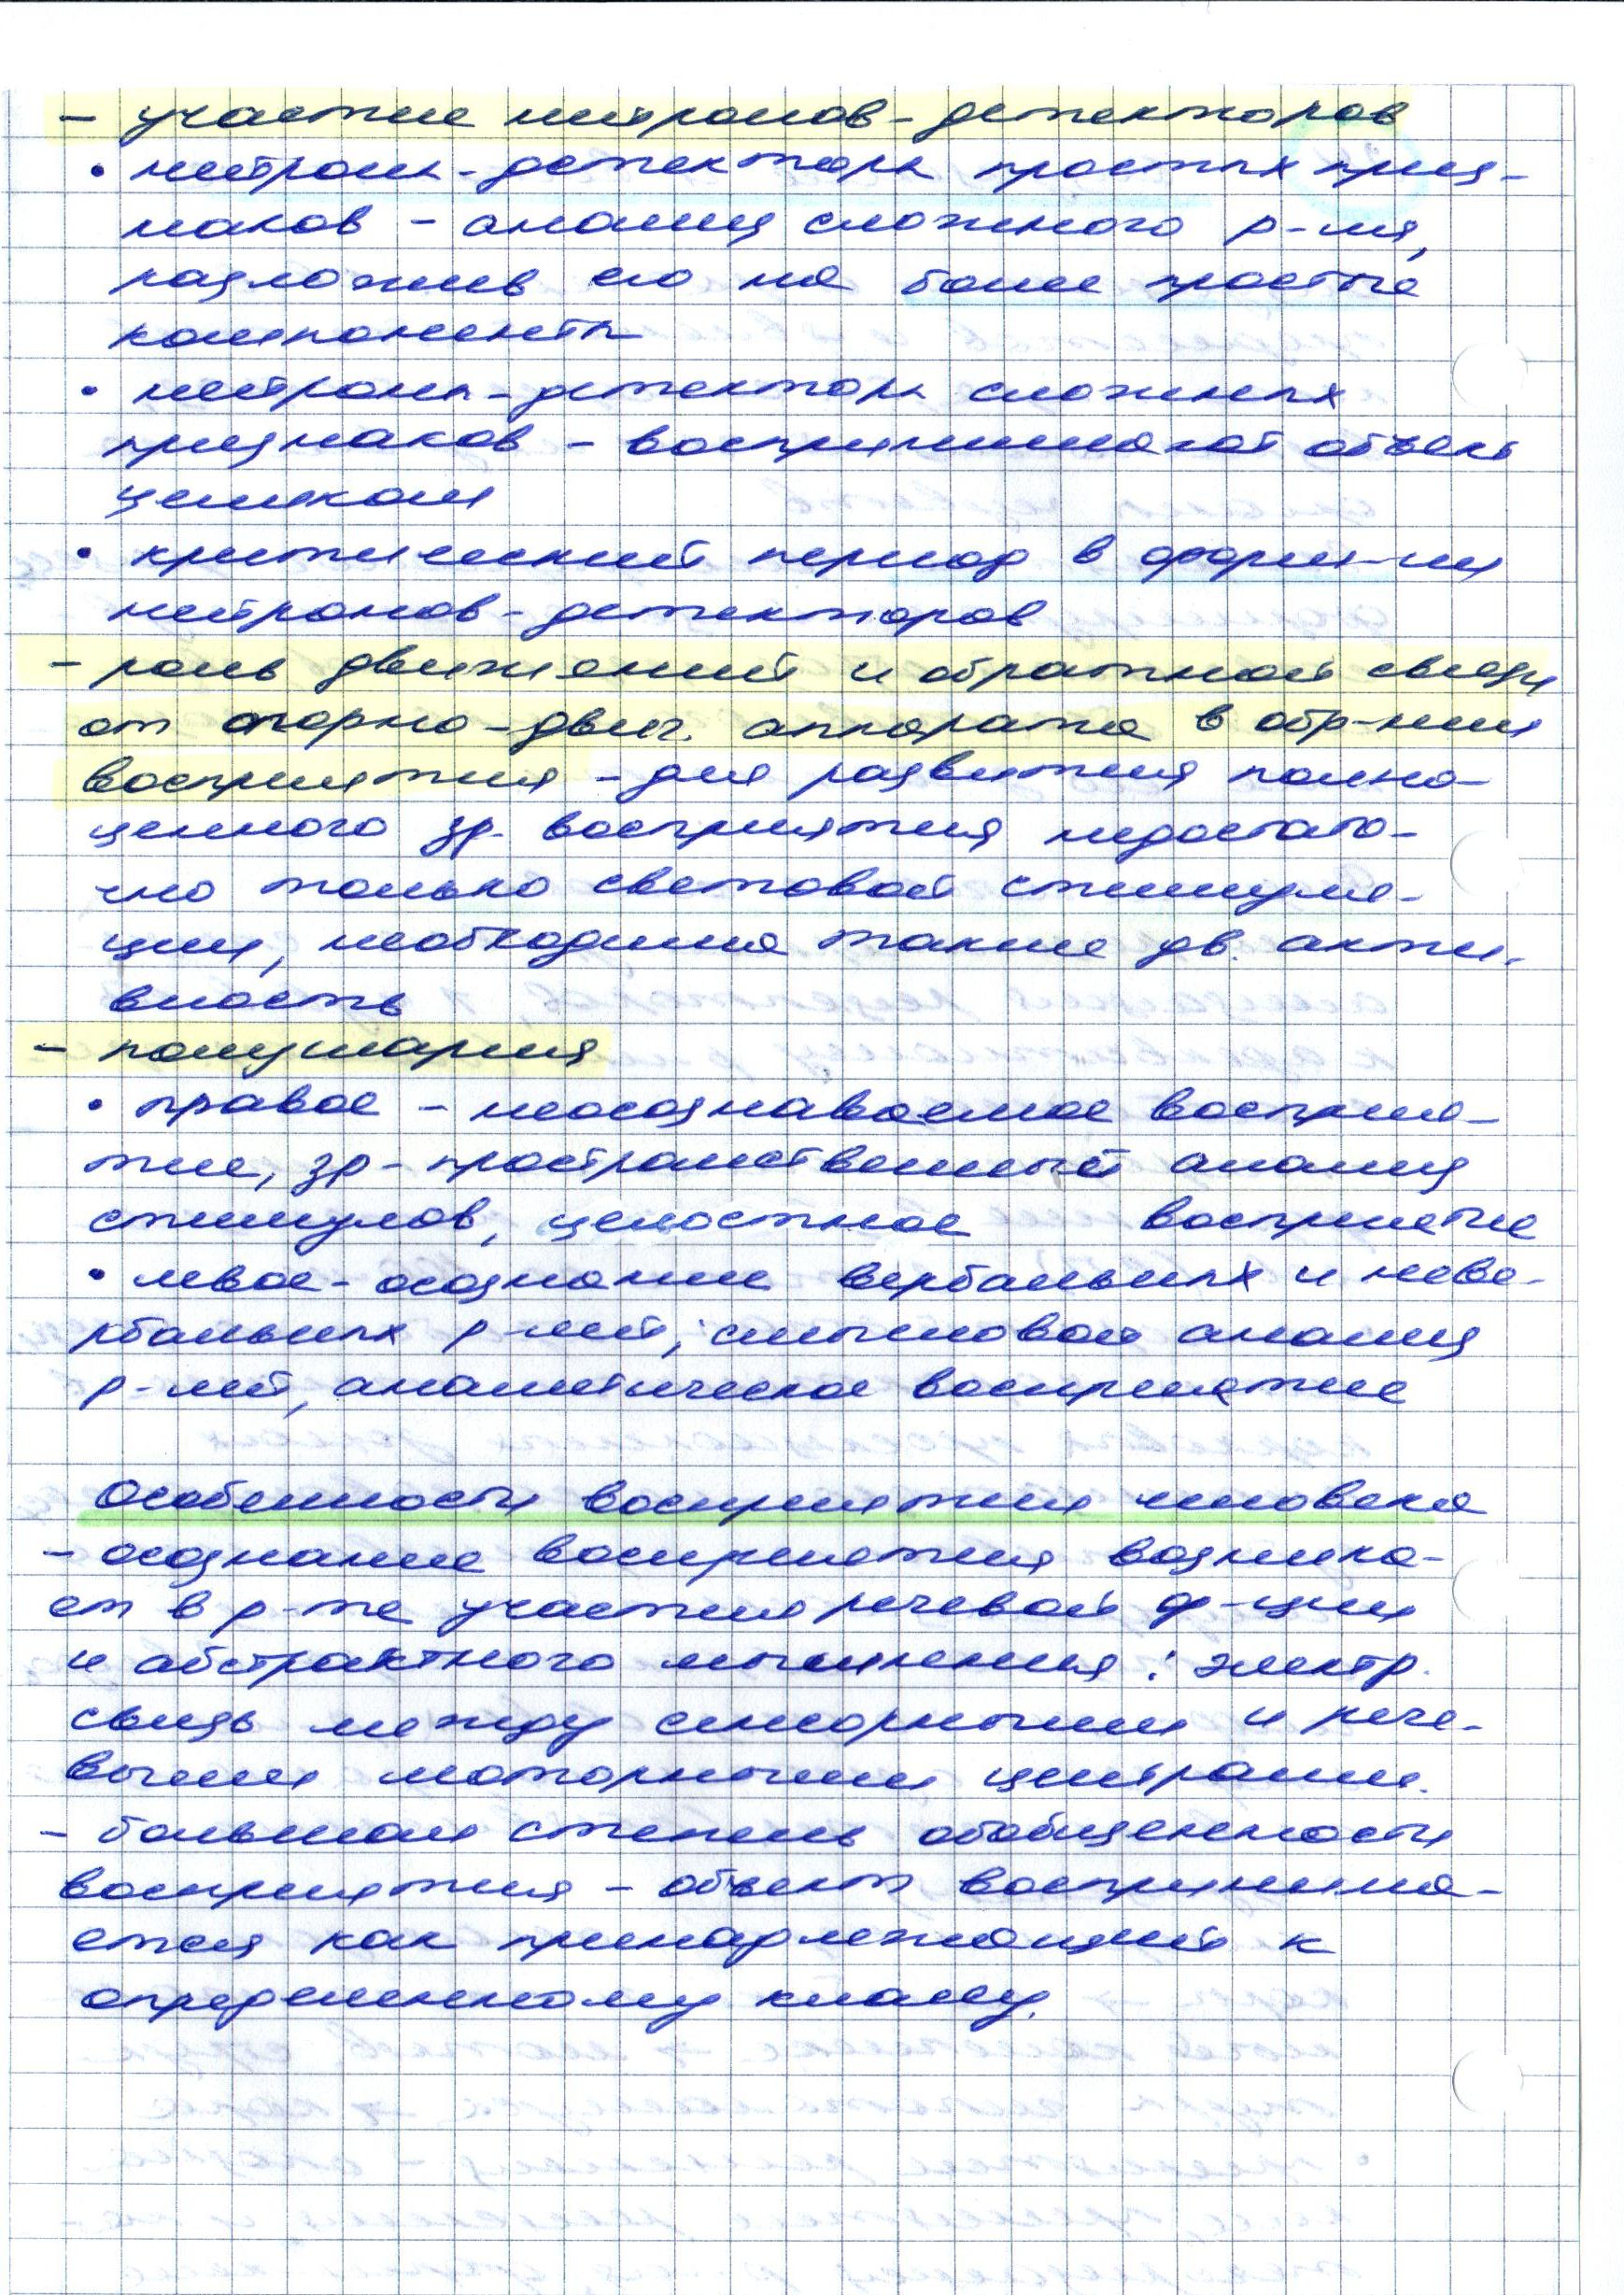 - участие нейронов-детекторов
• нейроны-детекторы простых приз-
наков - анализ сложного р-ля,
разложив его на более простые
компоненты
• нейроны-детекторы сложных
признаков - воспринимают объект
целиком
• критический период в форм-ии
нейронов-детекторов
- роль движений и обратной связи
от опорно-двиг. аппарата в обр-нии
восприятия - для развития полно-
ценного зр. восприятия недостато-
чно только световой стимуля-
ции, необходима также дв. акти-
вность
- полушария
• правое - неосознаваемое восприя-
тие, зр-пространственный анализ
стимулов, целостное восприятие
• левое - осознание вербальных и неве-
рбальных р-лей; смысловой анализ
р-лей, аналитическое восприятие
Особенности восприятия человека
- осознание восприятия возника-
ет в р-те участия речевой ф-ции
и абстрактного мышления: электр.
связь между сенсорными и рече-
выми моторными центрами.
- большая степень обобщенности
восприятия - объект воспринима-
ется как принадлежащий к
определенному классу.